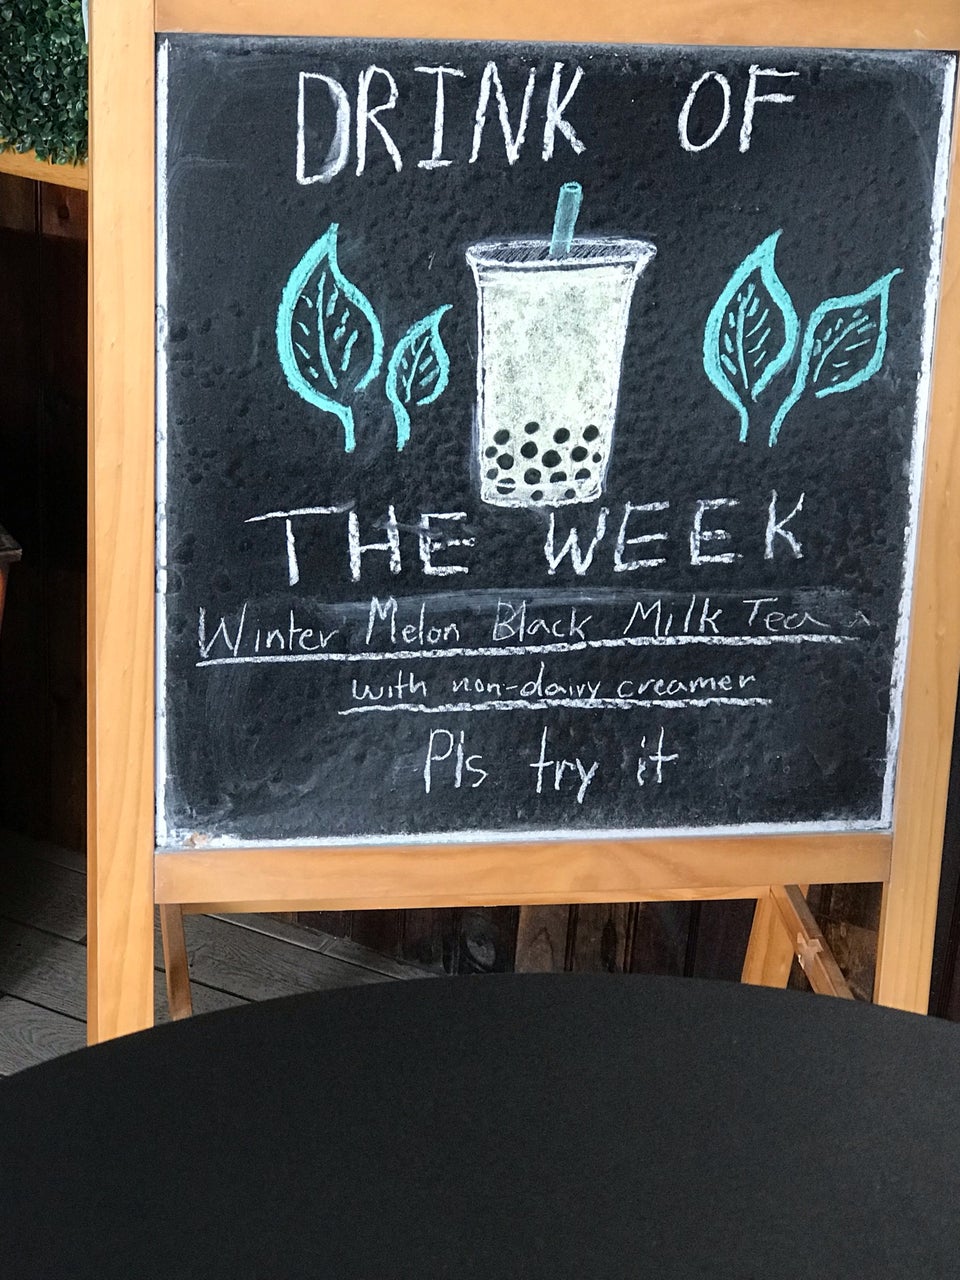 DRINK OF
THE WEEK
Winter Melon Black Milk Tea
with non-dairy creamer
Pls try it